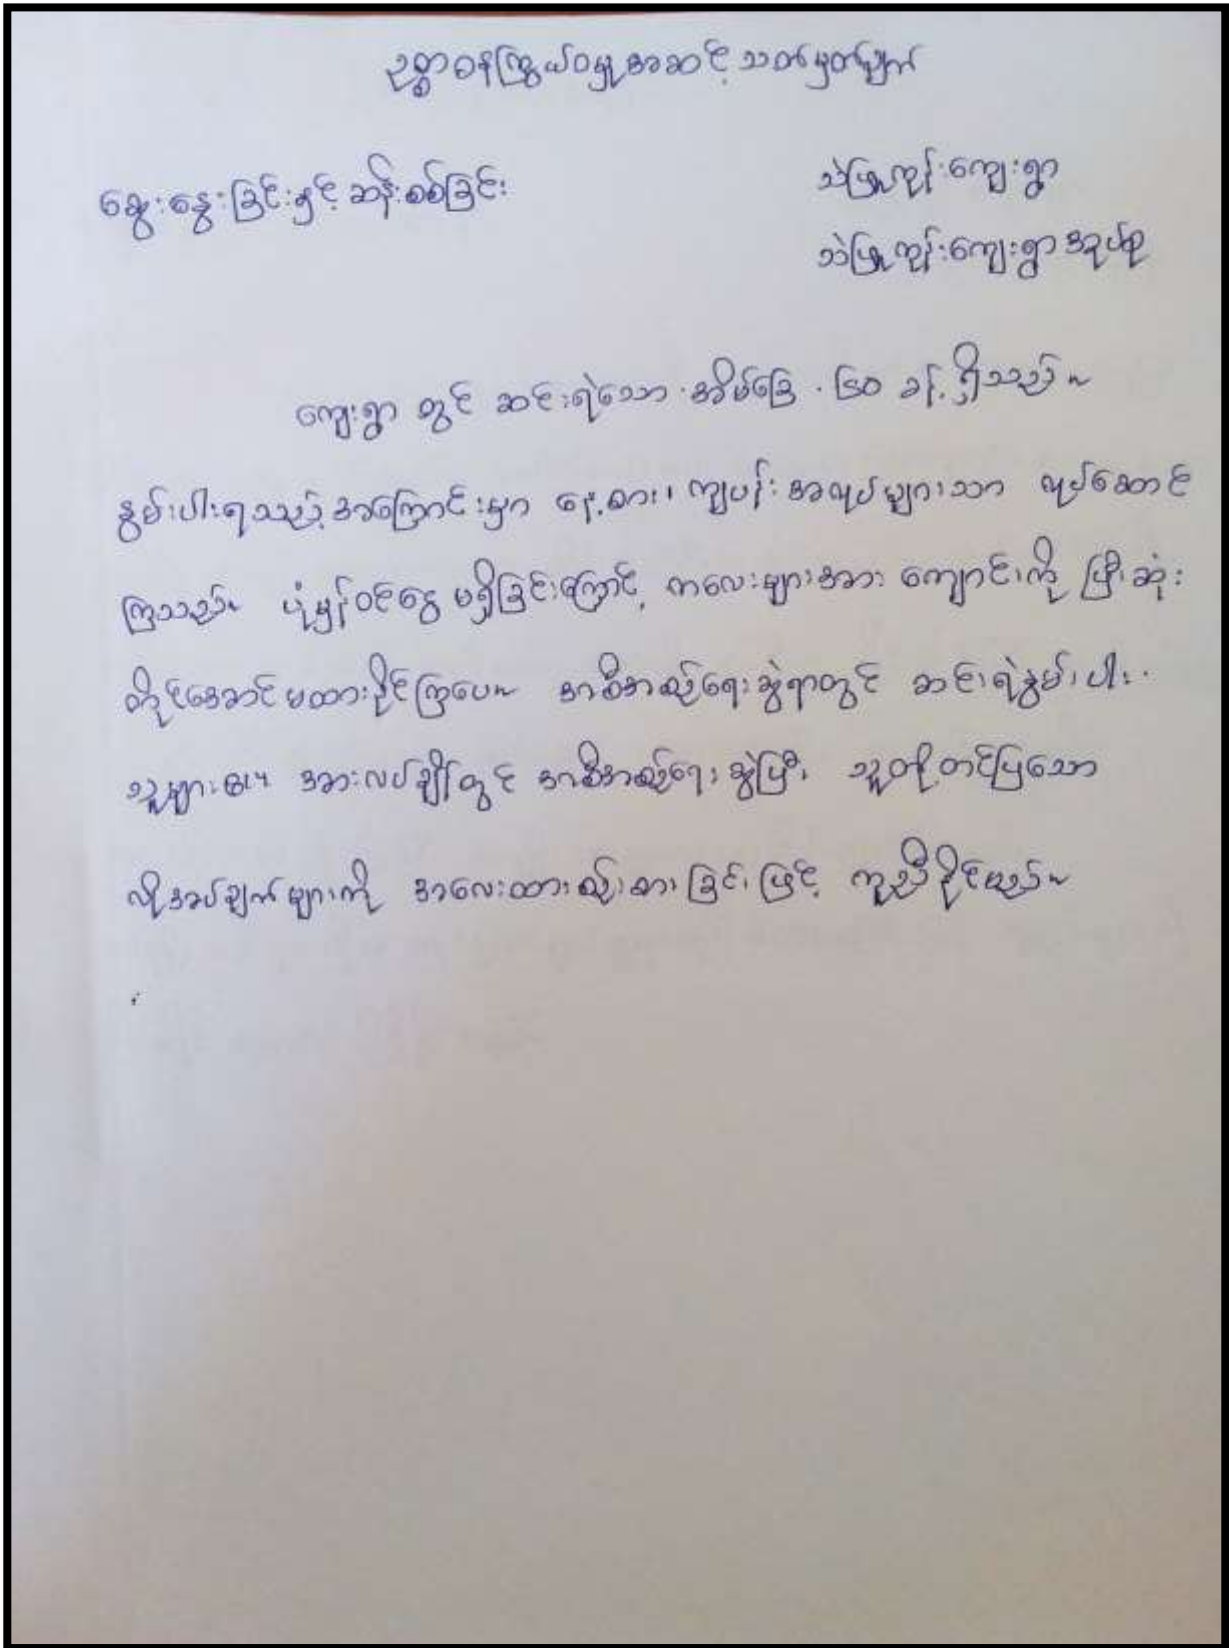 ဥစ္စာဓနကြွယ်ဝမှုအဆင့်သတ်မှတ်ချက်
ဆွေးနွေးခြင်းနှင့်ဆန်းစစ်ခြင်း
သဲဖြူကုန်းကျေးရွာ
သဲဖြူကုန်းကျေးရွာအုပ်စု
ကျေးရွာ တွင် ဆင်းရဲသော အိမ်ခြေ ၆၀ ခန့် ရှိသည်။
နွမ်းပါးရသည့်အကြောင်းမှာ နေ့စား၊ ကျပန်း အလုပ်များသာ လုပ်ဆောင်
ကြသည်။ ပုံမှန်ဝင်ငွေ မရှိခြင်းကြောင့် ကလေးများအား ကျောင်းကို ပြီးဆုံး
တိုင်အောင် မထားနိုင်ကြပေ။ အစီအစဉ်ရေးဆွဲရာတွင် ဆင်းရဲနွမ်းပါး
သူများ၏ အားလပ်ချိန်တွင် အစီအစဉ်ရေးဆွဲပြီး သူတို့တင်ပြသော
လိုအပ်ချက်များကို အလေးထားစဉ်းစားခြင်းဖြင့် ကူညီနိုင်မည်။